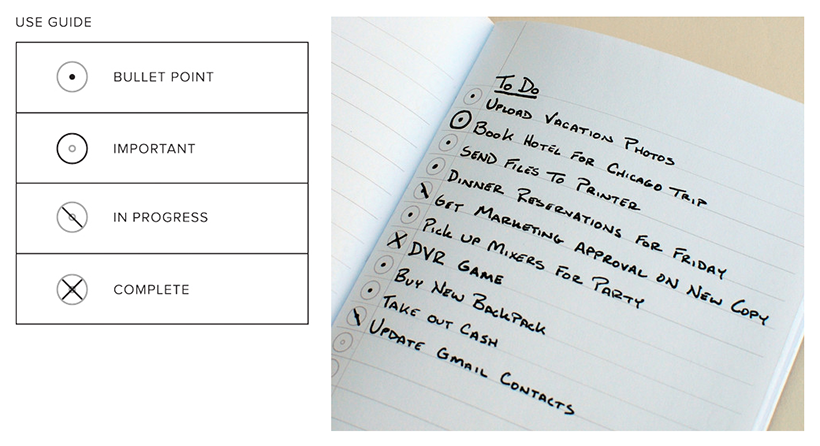 USE GUIDE
BULLET POINT
IMPORTANT
IN PROGRESS
COMPLETE
To Do
UPLOAD VACATION PHOTOS
BOOK HOTEL FOR CHICAGO TRIP
SEND FILES TO PRINTER
DINNER RESERVATIONS FOR FRIDAY
GET MARKETING APPROVAL ON NEW COPY
PICK UP MIXERS FOR PARTY
DVR GAME
BUY NEW BACKPACK
TAKE OUT CASH
UPDATE GMAIL CONTACTS